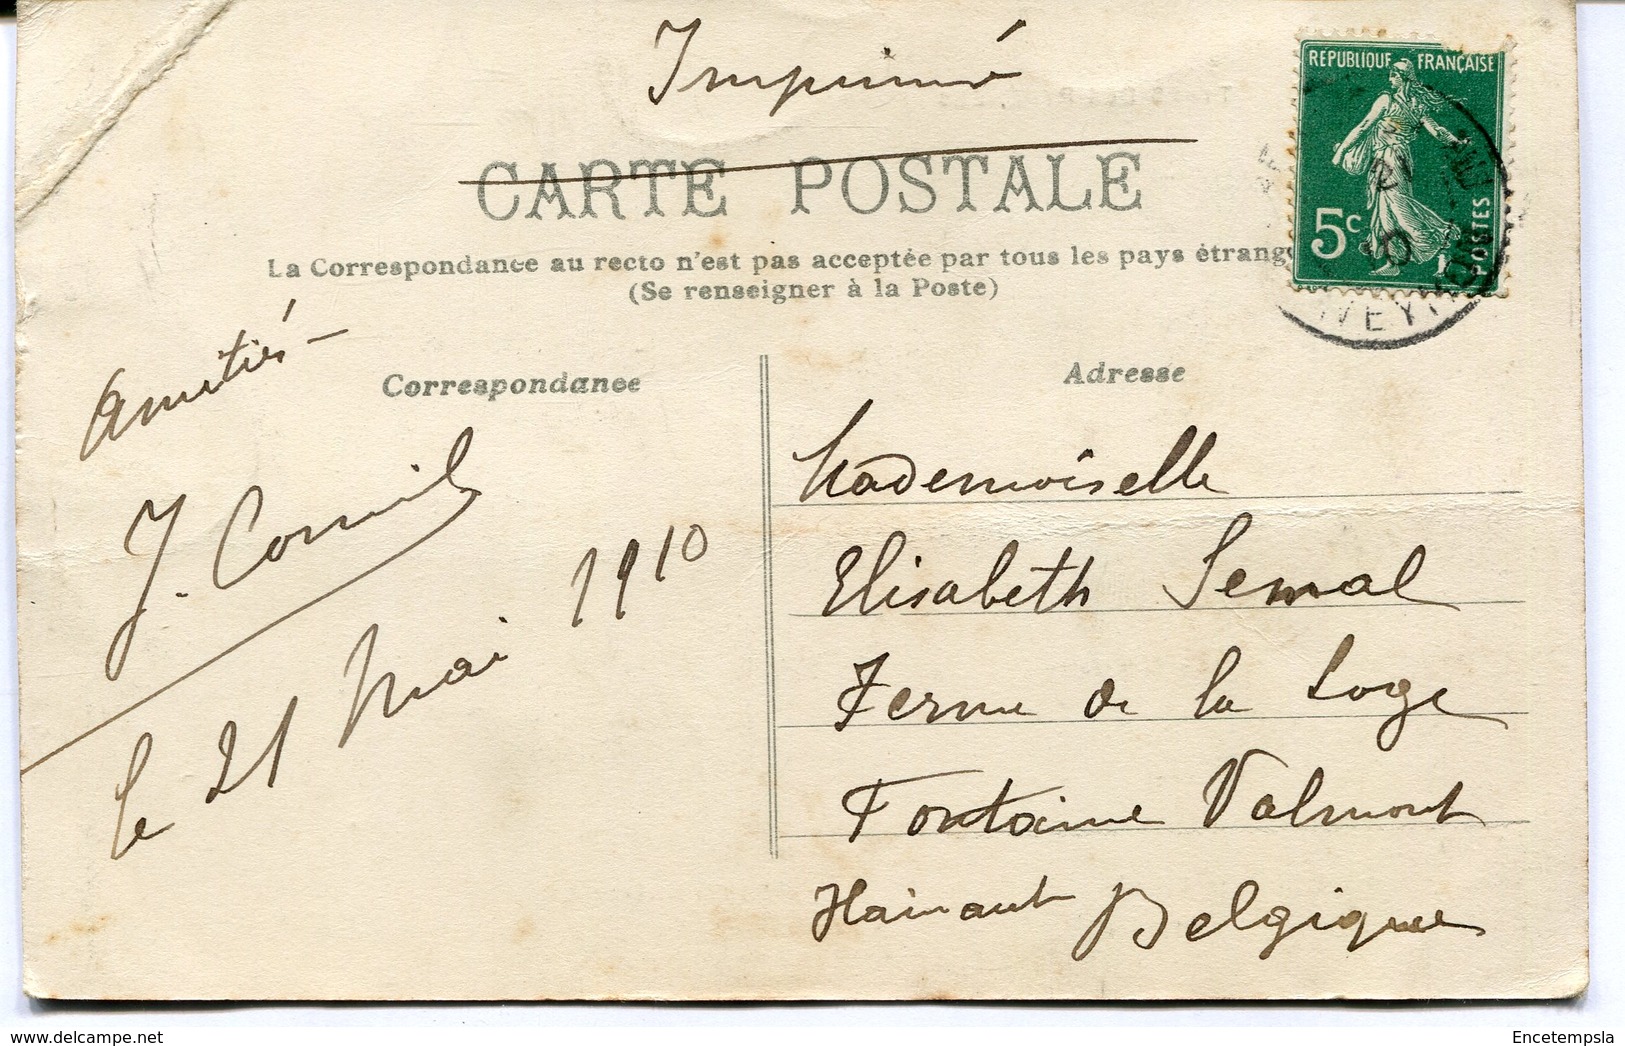 Imprimé
CARTE POSTALE
La Correspondance au recto n'est pas acceptée par tous les pays étrang
(Se renseigner à la Poste)
RÉPUBLIQUE FRANÇAISE
5c
POSTES
VEY
Correspondance
Amitiés -
J. Cornil
le 21 Mai 1910
Adresse
Mademoiselle
Elisabeth Semal
Ferme de la Loge
Fontaine Valmont
Hainaut Belgique
Encetempsla